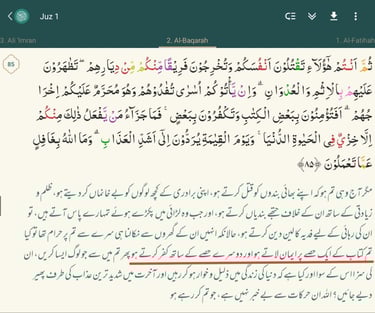 Juz 1
3. Ali 'Imran 2. Al-Baqarah 1. Al-Fatihah
85
ثُمَّ اَنْتُمْ هٰٓؤُلَآءِ تَقْتُلُوْنَ اَنْفُسَكُمْ وَتُخْرِجُوْنَ فَرِيْقًا مِّنْكُمْ مِّنْ دِيَارِهِمْ ۖ تَظٰهَرُوْنَ
عَلَيْهِمْ بِالْاِثْمِ وَالْعُدْوَانِ ۗ وَاِنْ يَّاْتُوْكُمْ اُسٰرٰى تُفٰدُوْهُمْ وَهُوَ مُحَرَّمٌ عَلَيْكُمْ اِخْرَا
جُهُمْ ۗ اَفَتُؤْمِنُوْنَ بِبَعْضِ الْكِتٰبِ وَتَكْفُرُوْنَ بِبَعْضٍ ۚ فَمَا جَزَآءُ مَنْ يَّفْعَلُ ذٰلِكَ مِنْكُمْ
اِلَّا خِزْيٌ فِى الْحَيٰوةِ الدُّنْيَا ۚ وَيَوْمَ الْقِيٰمَةِ يُرَدُّوْنَ اِلٰٓى اَشَدِّ الْعَذَابِ ۗ وَمَا اللّٰهُ بِغَافِلٍ
عَمَّا تَعْمَلُوْنَ ﴿۸۵﴾
مگر آج وہی تم ہو کہ اپنے بھائی بندوں کو قتل کرتے ہو، اپنی برادری کے کچھ لوگوں کو بے خانماں کر دیتے ہو، ظلم و
زیادتی کے ساتھ ان کے خلاف جتھے بندیاں کرتے ہو، اور جب وہ لڑائی میں پکڑے ہوئے تمہارے پاس آتے ہیں، تو
ان کی رہائی کے لیے فدیہ کا لین دین کرتے ہو، حالانکہ انہیں ان کے گھروں سے نکالنا ہی سرے سے تم پر حرام تھا تو کیا
تم کتاب کے ایک حصے پر ایمان لاتے ہو اور دوسرے حصے کے ساتھ کفر کرتے ہو پھر تم میں سے جو لوگ ایسا کریں، ان
کی سزا اس کے سوا اور کیا ہے کہ دنیا کی زندگی میں ذلیل و خوار ہو کر رہیں اور آخرت میں شدید ترین عذاب کی طرف پھیر
دیے جائیں؟ اللہ ان حرکات سے بے خبر نہیں ہے، جو تم کر رہے ہو